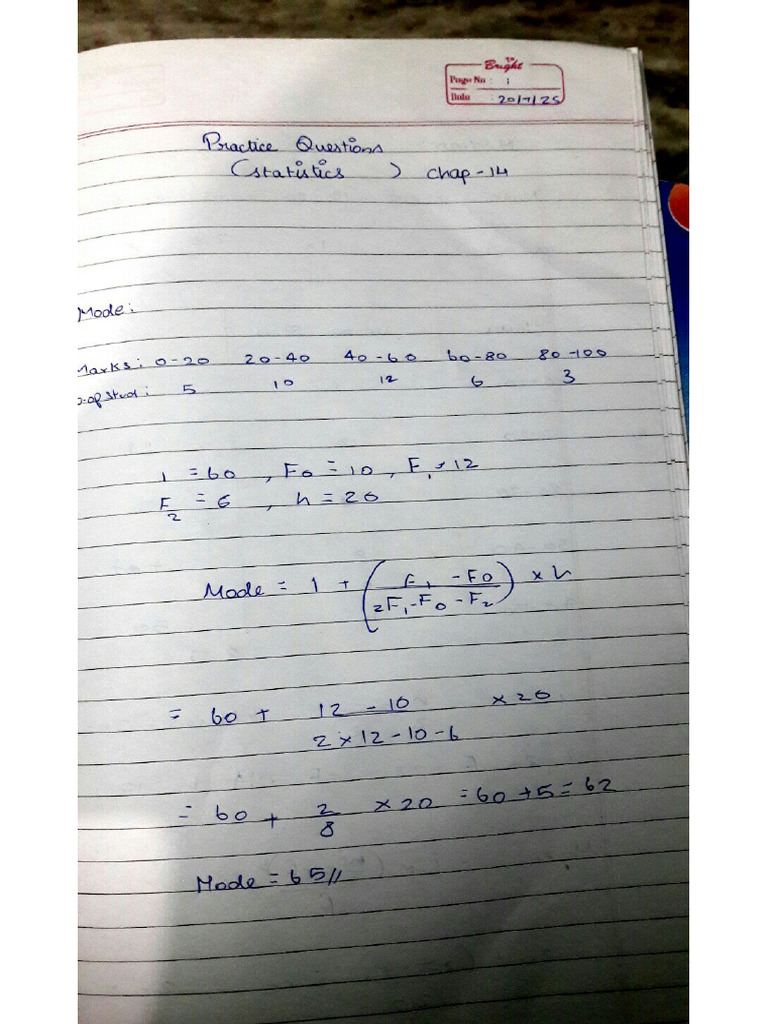 Bright
Page No : 1
Date : 20/7/25
Practice Questions
(statistics ) chap-14
Mode:
Marks: 0-20 20-40 40-60 60-80 80-100
of stud: 5 10 12 6 3
l = 60 , F0 = 10 , F1 = 12
F2 = 6 , h = 20
Mode = l + (F1 - F0 / 2F1 - F0 - F2) × h
= 60 + 12 - 10 × 20
2 × 12 - 10 - 6
= 60 + 2/8 × 20 = 60 + 5 = 62
Mode = 65//